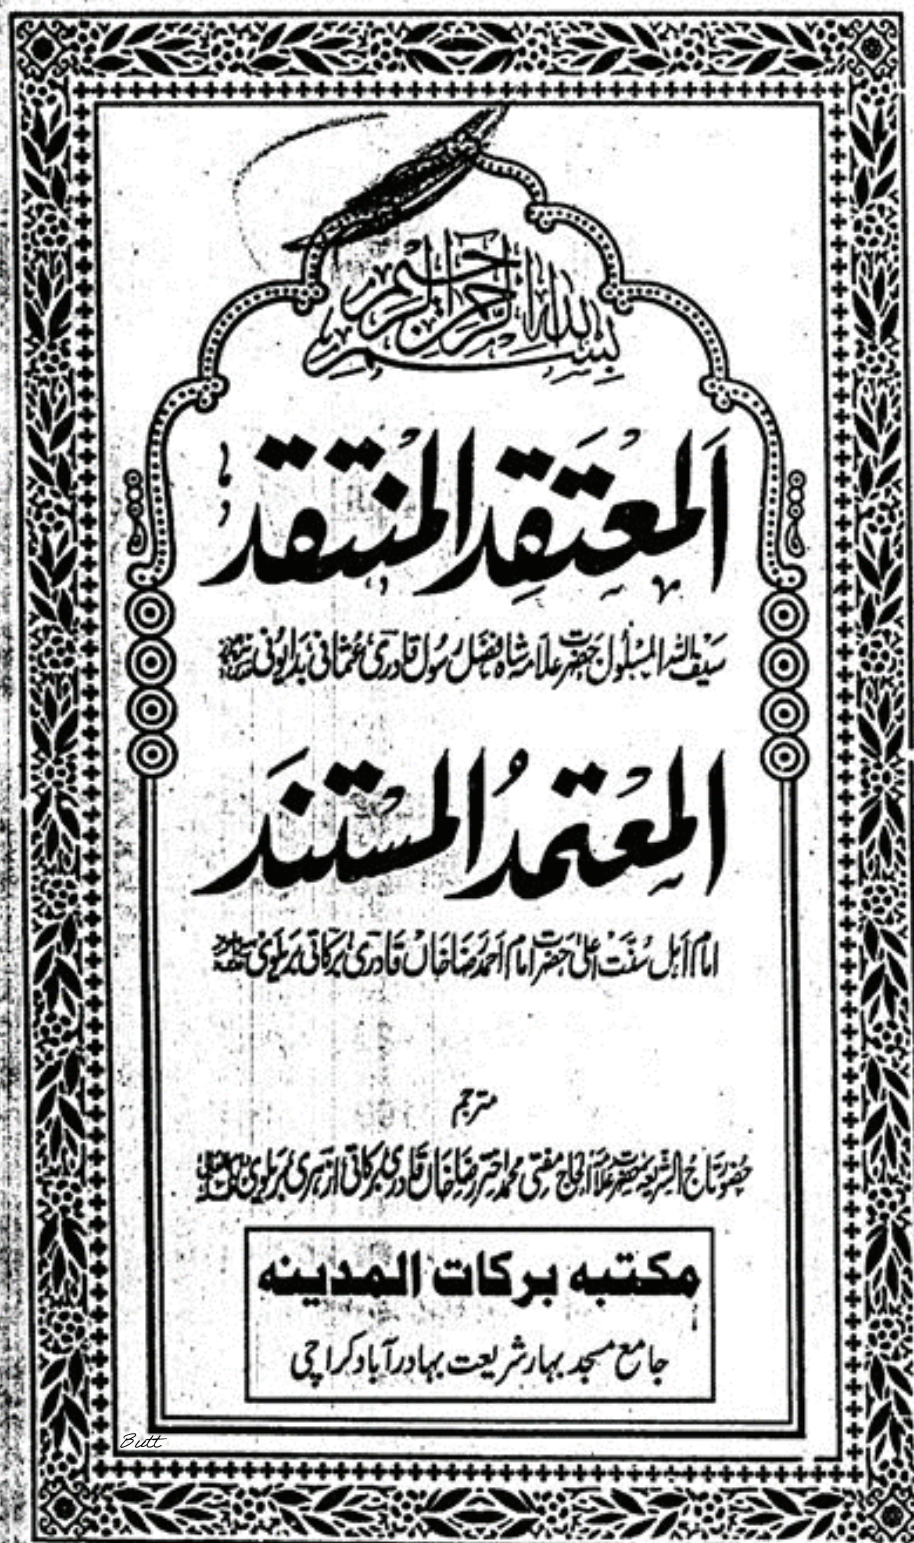 بسم الله الرحمن الرحيم
اَلمُعتَقِد المُنتَقد
سَیفُ اللہ المسلُول حضرت علامہ شاہ فضل رسُول قادری عثمانی بدایونی
المُعتمدُ المستنَد
امام اہل سُنّت اعلیٰ حضرت امام احمد رضا خاں قادری برکاتی بریلوی
مترجم
حضور تاج الشریعہ حضرت علامہ الحاج مفتی محمد اختر رضا خاں قادری برکاتی ازہری بریلوی
مکتبہ برکات المدینہ
جامع مسجد بہار شریعت بہادر آباد کراچی
Butt